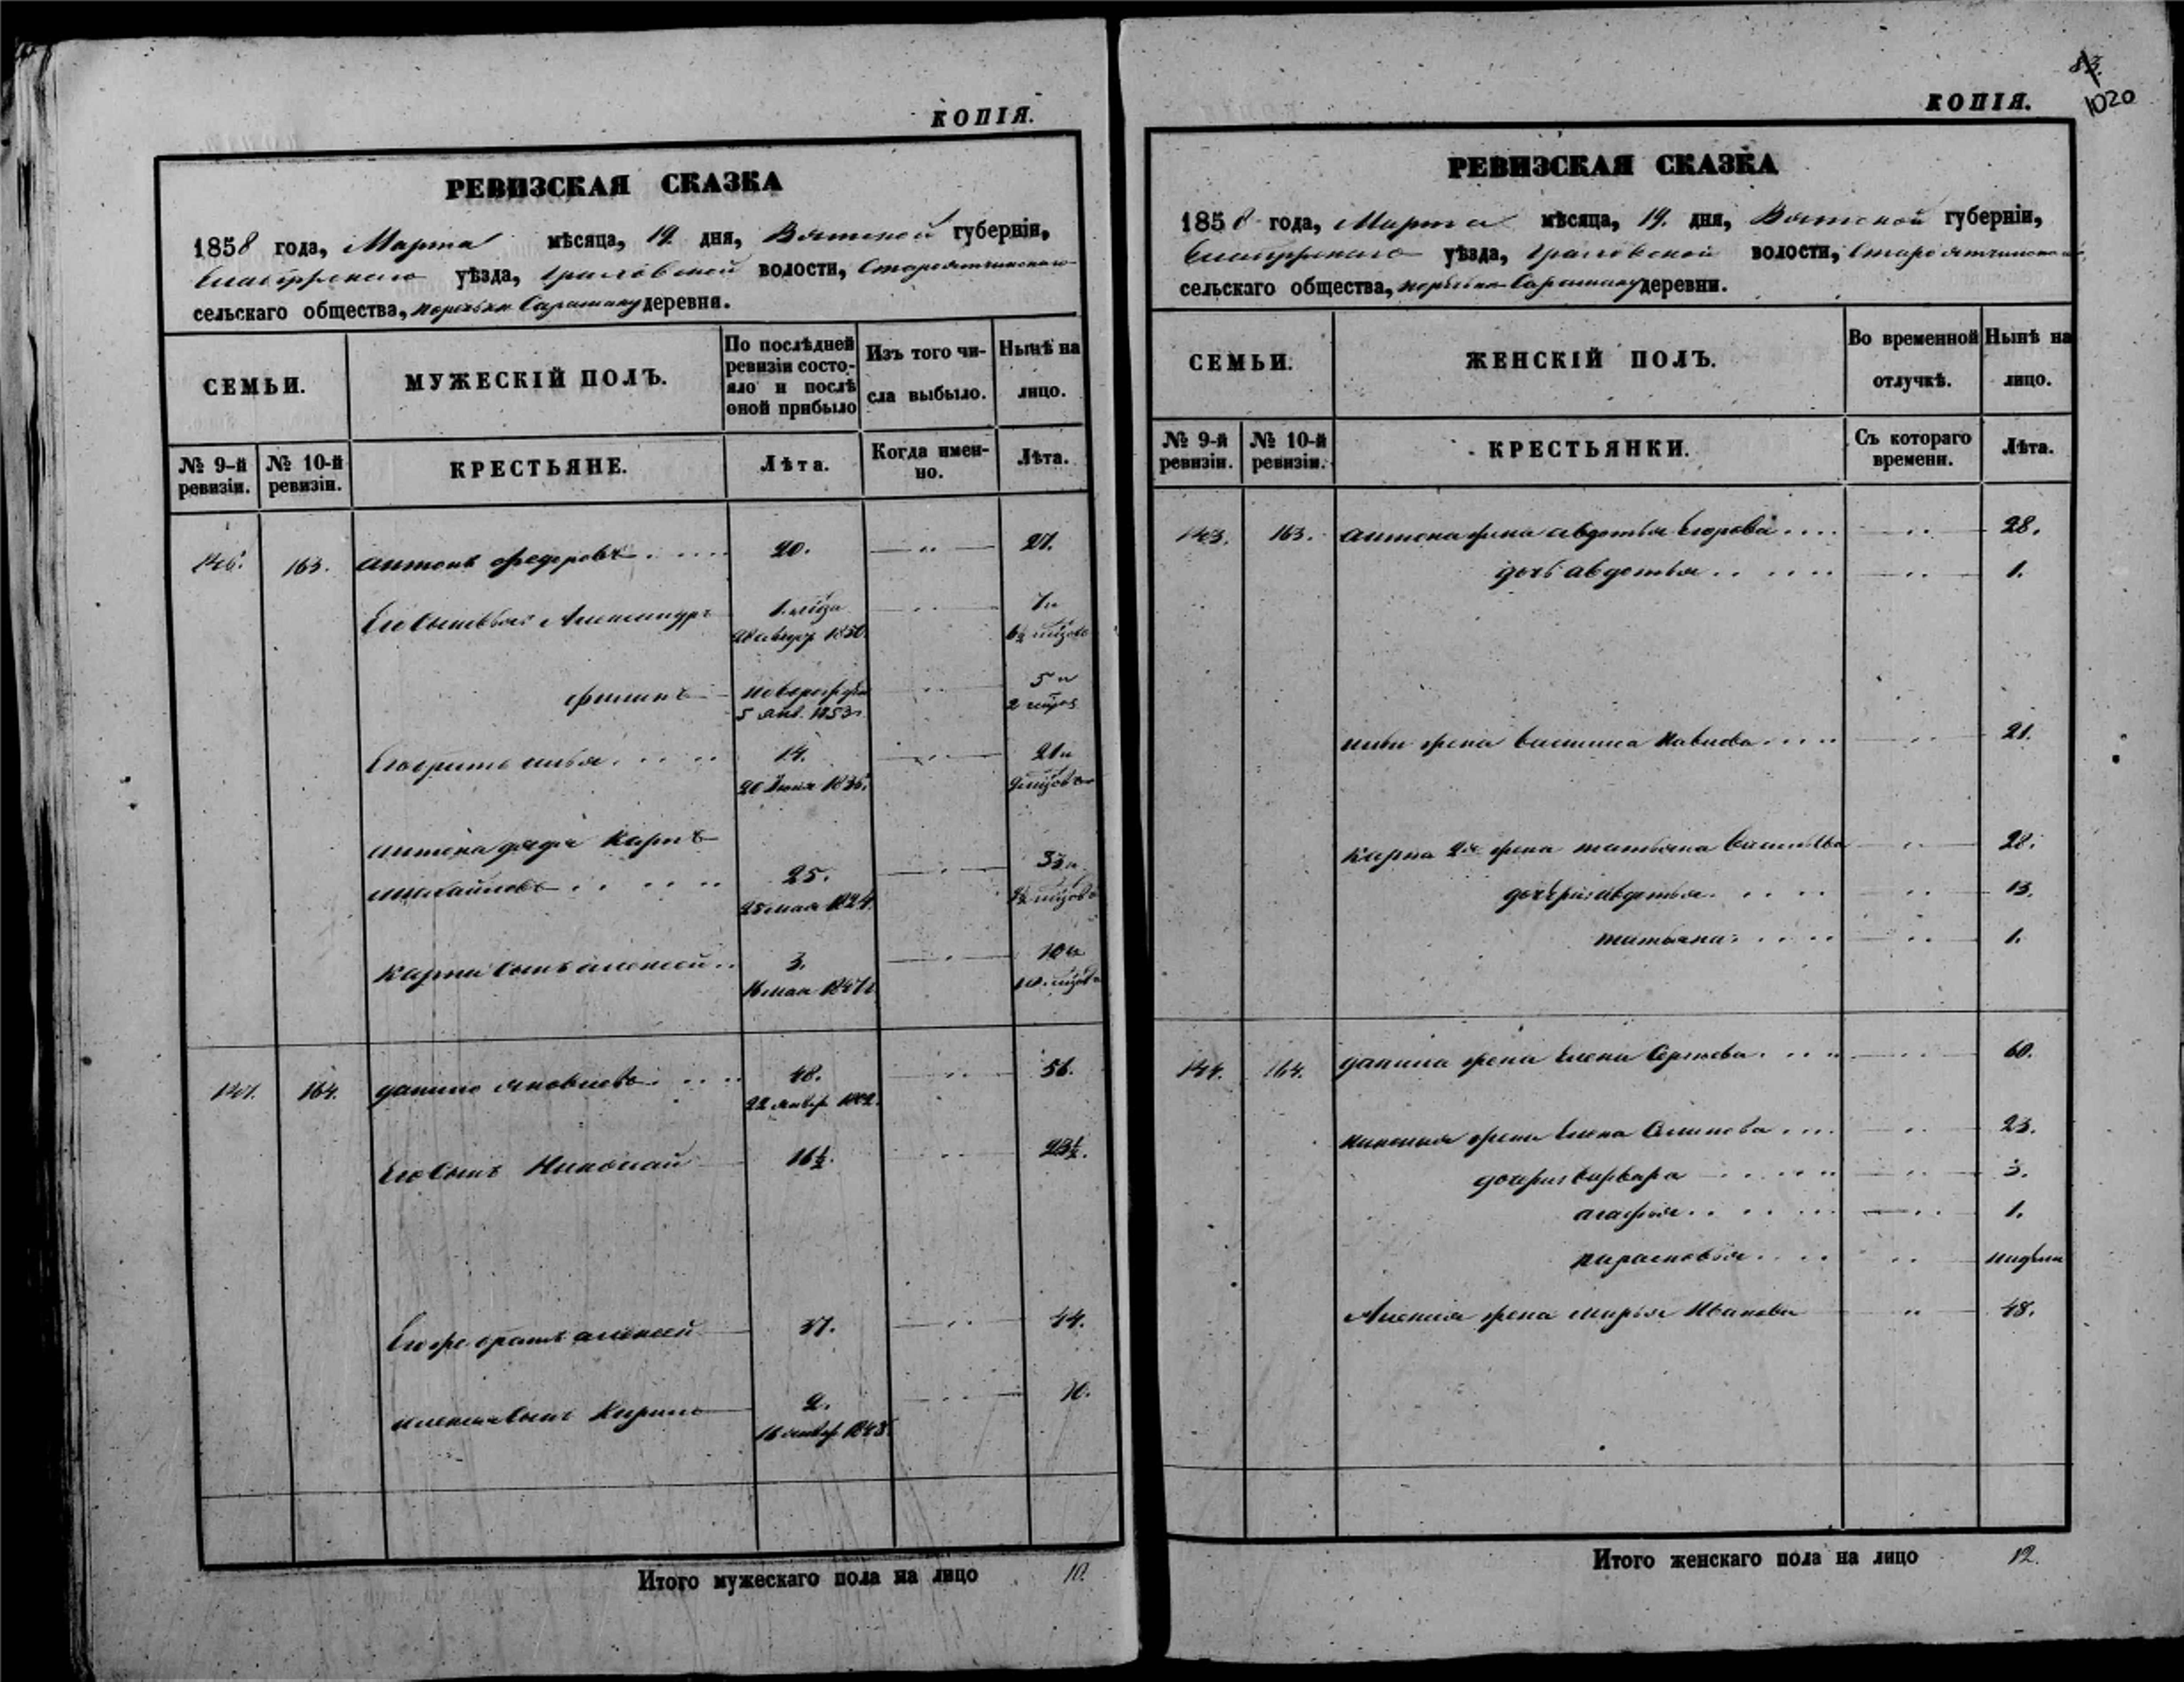 КОПІЯ.
РЕВИЗСКАЯ СКАЗКА
1858 года, Марта мѣсяца, 19 дня, Вятской губерніи,
Елабужскаго уѣзда, Граховской волости, Староятчинскаго
сельскаго общества, деревни.
СЕМЬИ.
МУЖЕСКІЙ ПОЛЪ.
По послѣдней
ревизіи состо-
яло и послѣ
оной прибыло
Изъ того чи-
сла выбыло.
Нынѣ на
лицо.
№ 9-й
ревизіи.
№ 10-й
ревизіи.
КРЕСТЬЯНЕ.
Лѣта.
Когда имен-
но.
Лѣта.
163. Антонъ Федоровъ 20. 27.
Его сыновья: Александръ
1850. 6½
Филипъ
5 Янв. 1853 5 и 2
Его братъ Илья 14. 21 и
20 Іюня 1836. 9
Антона дядя Карпъ
Михайловъ 25. 33 и
25 мая 1824.
Карпа сынъ Алексей 3. 10 и
16 мая 1847 10
164. Данило Яковлевъ 48. 56.
22 1802.
Его сынъ Николай 16½. 23½.
Его же братъ Алексей 37. 44.
Алексея сынъ Кирило 2. 10.
16 1848.
Итого мужескаго пола на лицо 10.
83.
1020
КОПІЯ.
РЕВИЗСКАЯ СКАЗКА
1858 года, Марта мѣсяца, 19. дня, Вятской губерніи,
Елабужскаго уѣзда, Граховской волости, Староятчинскаго
сельскаго общества, деревни.
СЕМЬИ.
ЖЕНСКІЙ ПОЛЪ.
Во временной
отлучкѣ.
Нынѣ на
лицо.
№ 9-й
ревизіи.
№ 10-й
ревизіи.
КРЕСТЬЯНКИ.
Съ котораго
времени.
Лѣта.
163. Антона жена Авдотья Егорова 28.
дочь Авдотья 1.
Ильи жена Василиса Павлова 21.
Карпа 2я жена Татьяна 28.
дочери: Авдотья 13.
Татьяна 1.
164. Данила жена Елена Сергѣева 60.
Николая жена Елена Семенова 23.
дочери: Варвара 3.
Агафья 1.
Парасковья
Алексея жена Марья Иванова 48.
Итого женскаго пола на лицо 12.